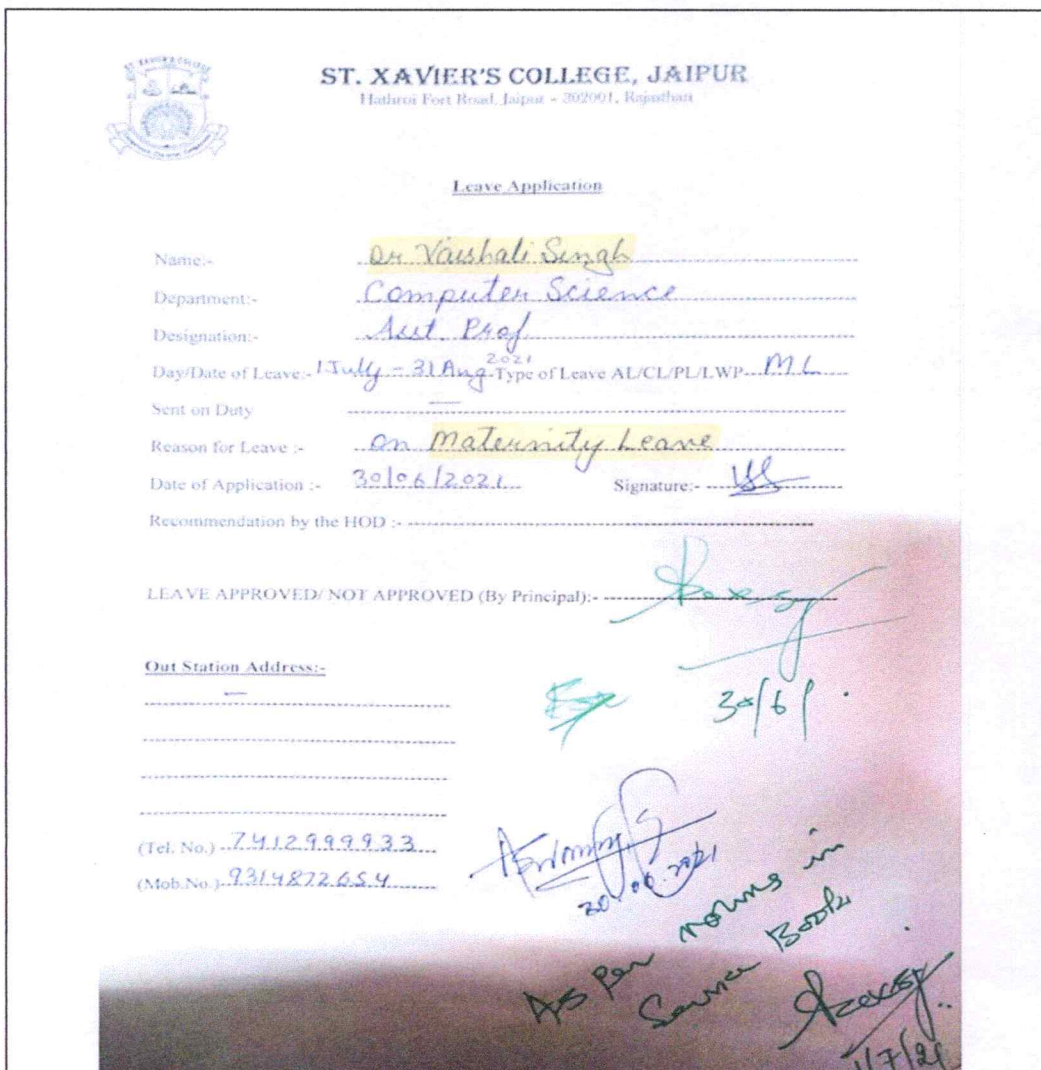 ST. XAVIER'S COLLEGE
ST. XAVIER'S COLLEGE, JAIPUR
Hathroi Fort Road, Jaipur - 302001, Rajasthan
Leave Application
Name:- Dr Vaishali Singh
Department:- Computer Science
Designation:- Asst. Prof
Day/Date of Leave:- 1 July - 31 Aug 2021 Type of Leave AL/CL/PL/LWP ML
Sent on Duty —
Reason for Leave :- on Maternity Leave
Date of Application :- 30/06/2021 Signature:-
Recommendation by the HOD :-
LEAVE APPROVED/ NOT APPROVED (By Principal):-
30/6/
Out Station Address:-
—
(Tel. No.) 7412999933
(Mob.No.) 9314872654
30.06.2021
As per norms in
Service Book
1/7/21